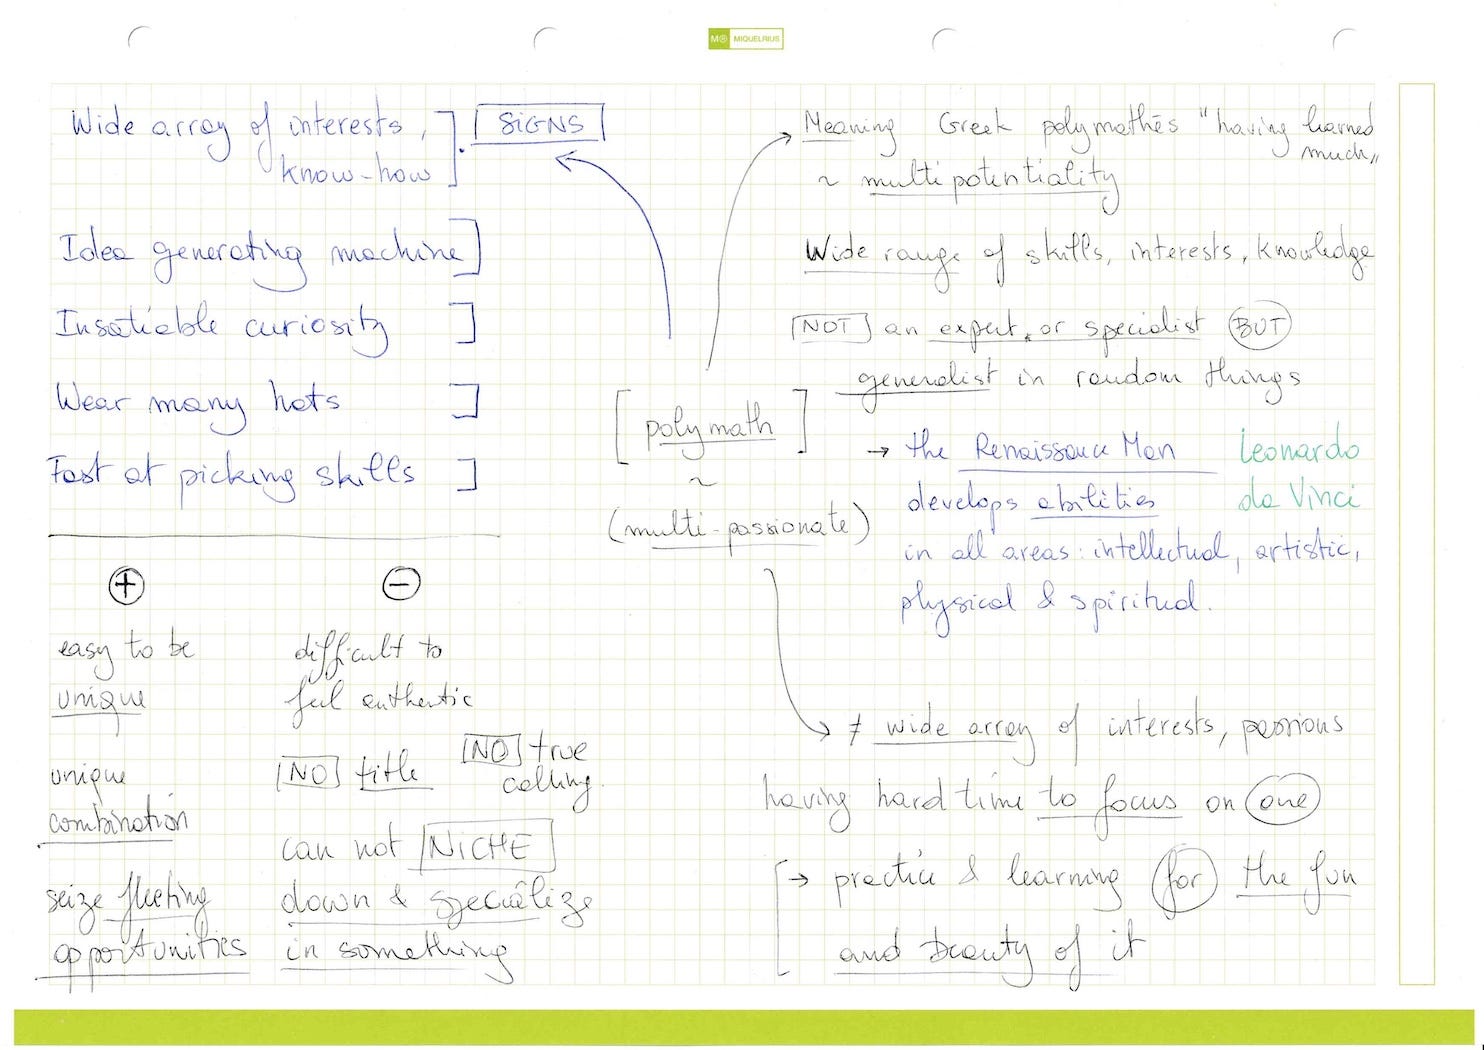 M® MIQUELRIUS
Wide array of interests,
know-how
SIGNS
Idea generating machine
Insatiable curiosity
Wear many hats
Fast at picking skills
+
easy to be
unique
unique
combination
seize fleeting
opportunities
−
difficult to
feel authentic
NO title
NO true
calling.
can not NICHE
down & specialize
in something
polymath
~
(multi-passionate)
→ Meaning Greek polymathēs "having learned
much"
~ multipotentiality
Wide range of skills, interests, knowledge
NOT an expert or specialist BUT
generalist in random things
→ the Renaissance Man
develops abilities
in all areas: intellectual, artistic,
physical & spiritual.
Leonardo
da Vinci
≠ wide array of interests, passions
having hard time to focus on one
→ practice & learning for the fun
and beauty of it